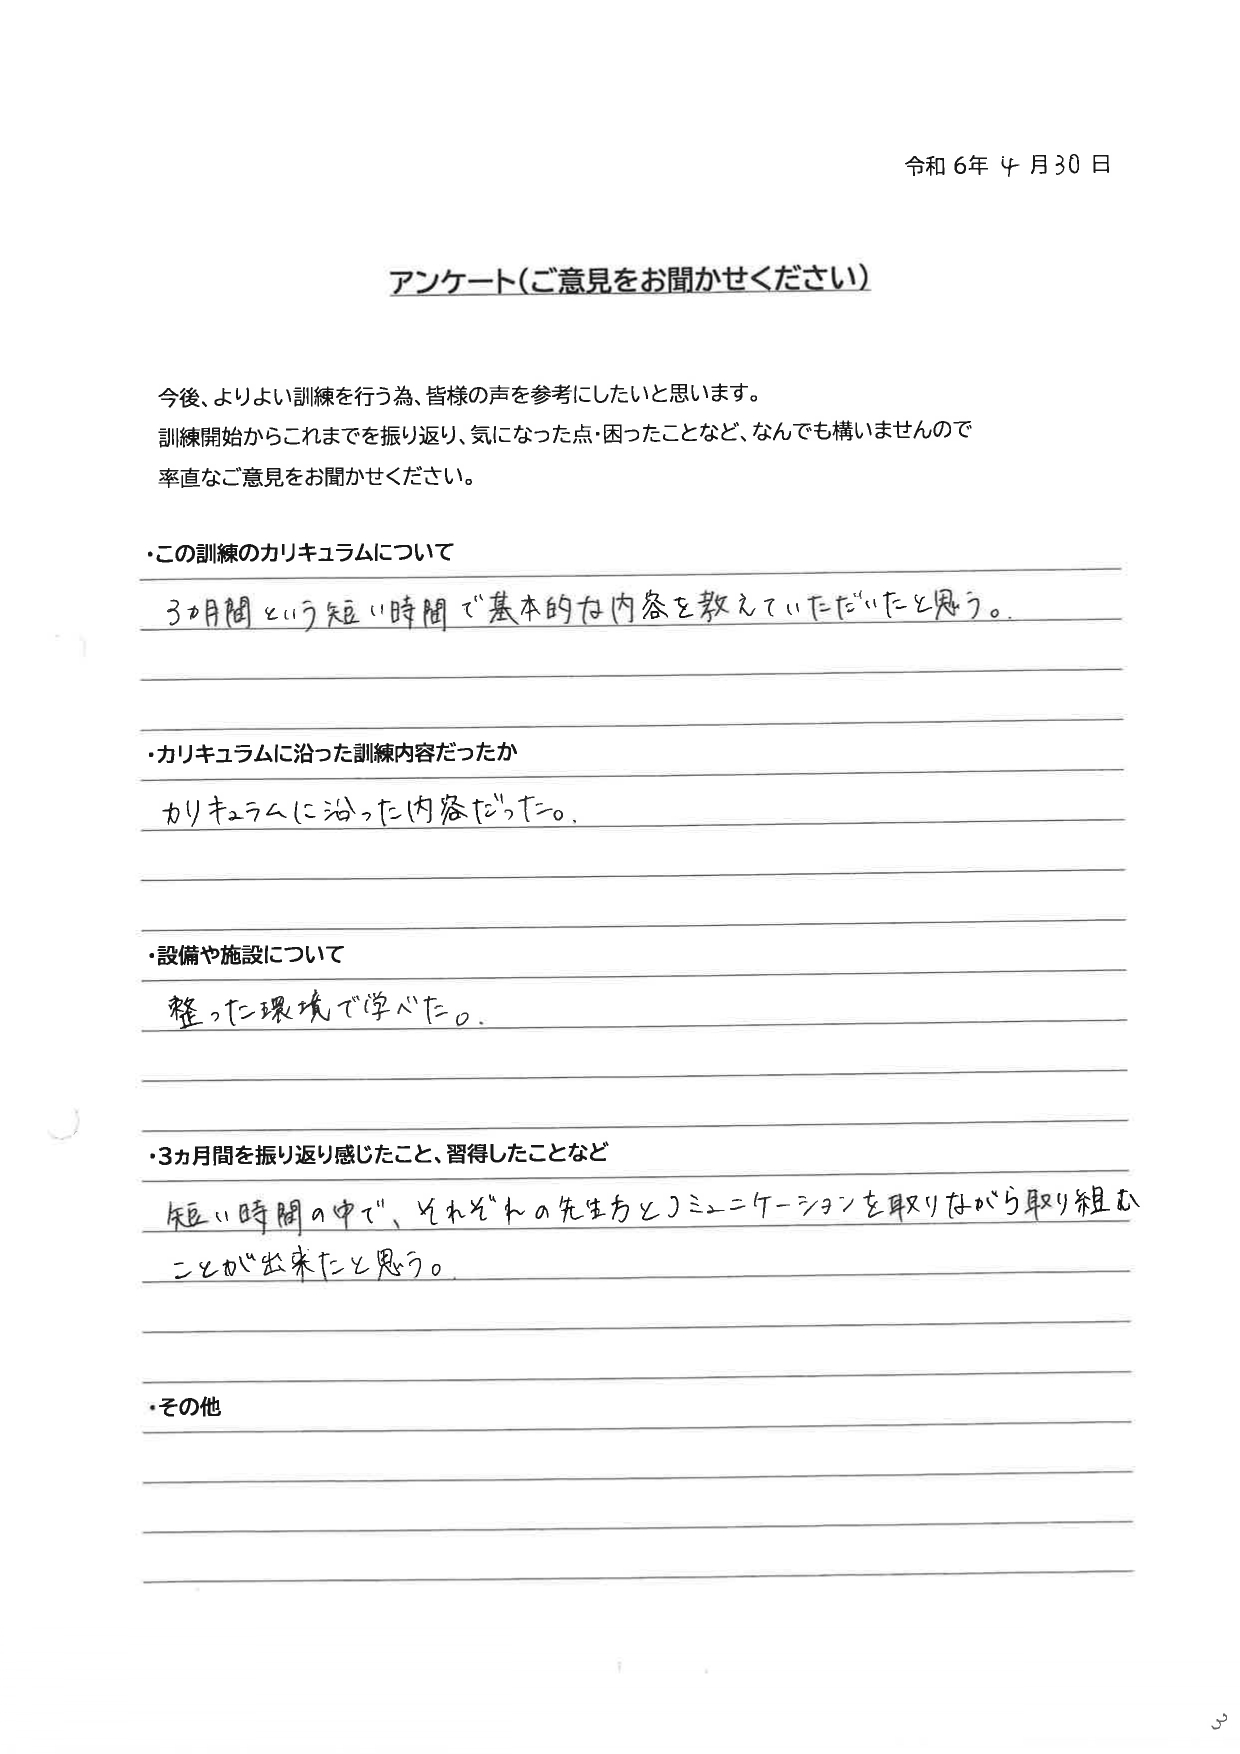 令和6年 4月30日
アンケート(ご意見をお聞かせください)
今後、よりよい訓練を行う為、皆様の声を参考にしたいと思います。
訓練開始からこれまでを振り返り、気になった点・困ったことなど、なんでも構いませんので
率直なご意見をお聞かせください。
・この訓練のカリキュラムについて
3カ月間という短い時間で基本的な内容を教えていただいたと思う。
・カリキュラムに沿った訓練内容だったか
カリキュラムに沿った内容だった。
・設備や施設について
整った環境で学べた。
・3ヵ月間を振り返り感じたこと、習得したことなど
短い時間の中で、それぞれの先生方とコミュニケーションを取りながら取り組む
ことが出来たと思う。
・その他
3